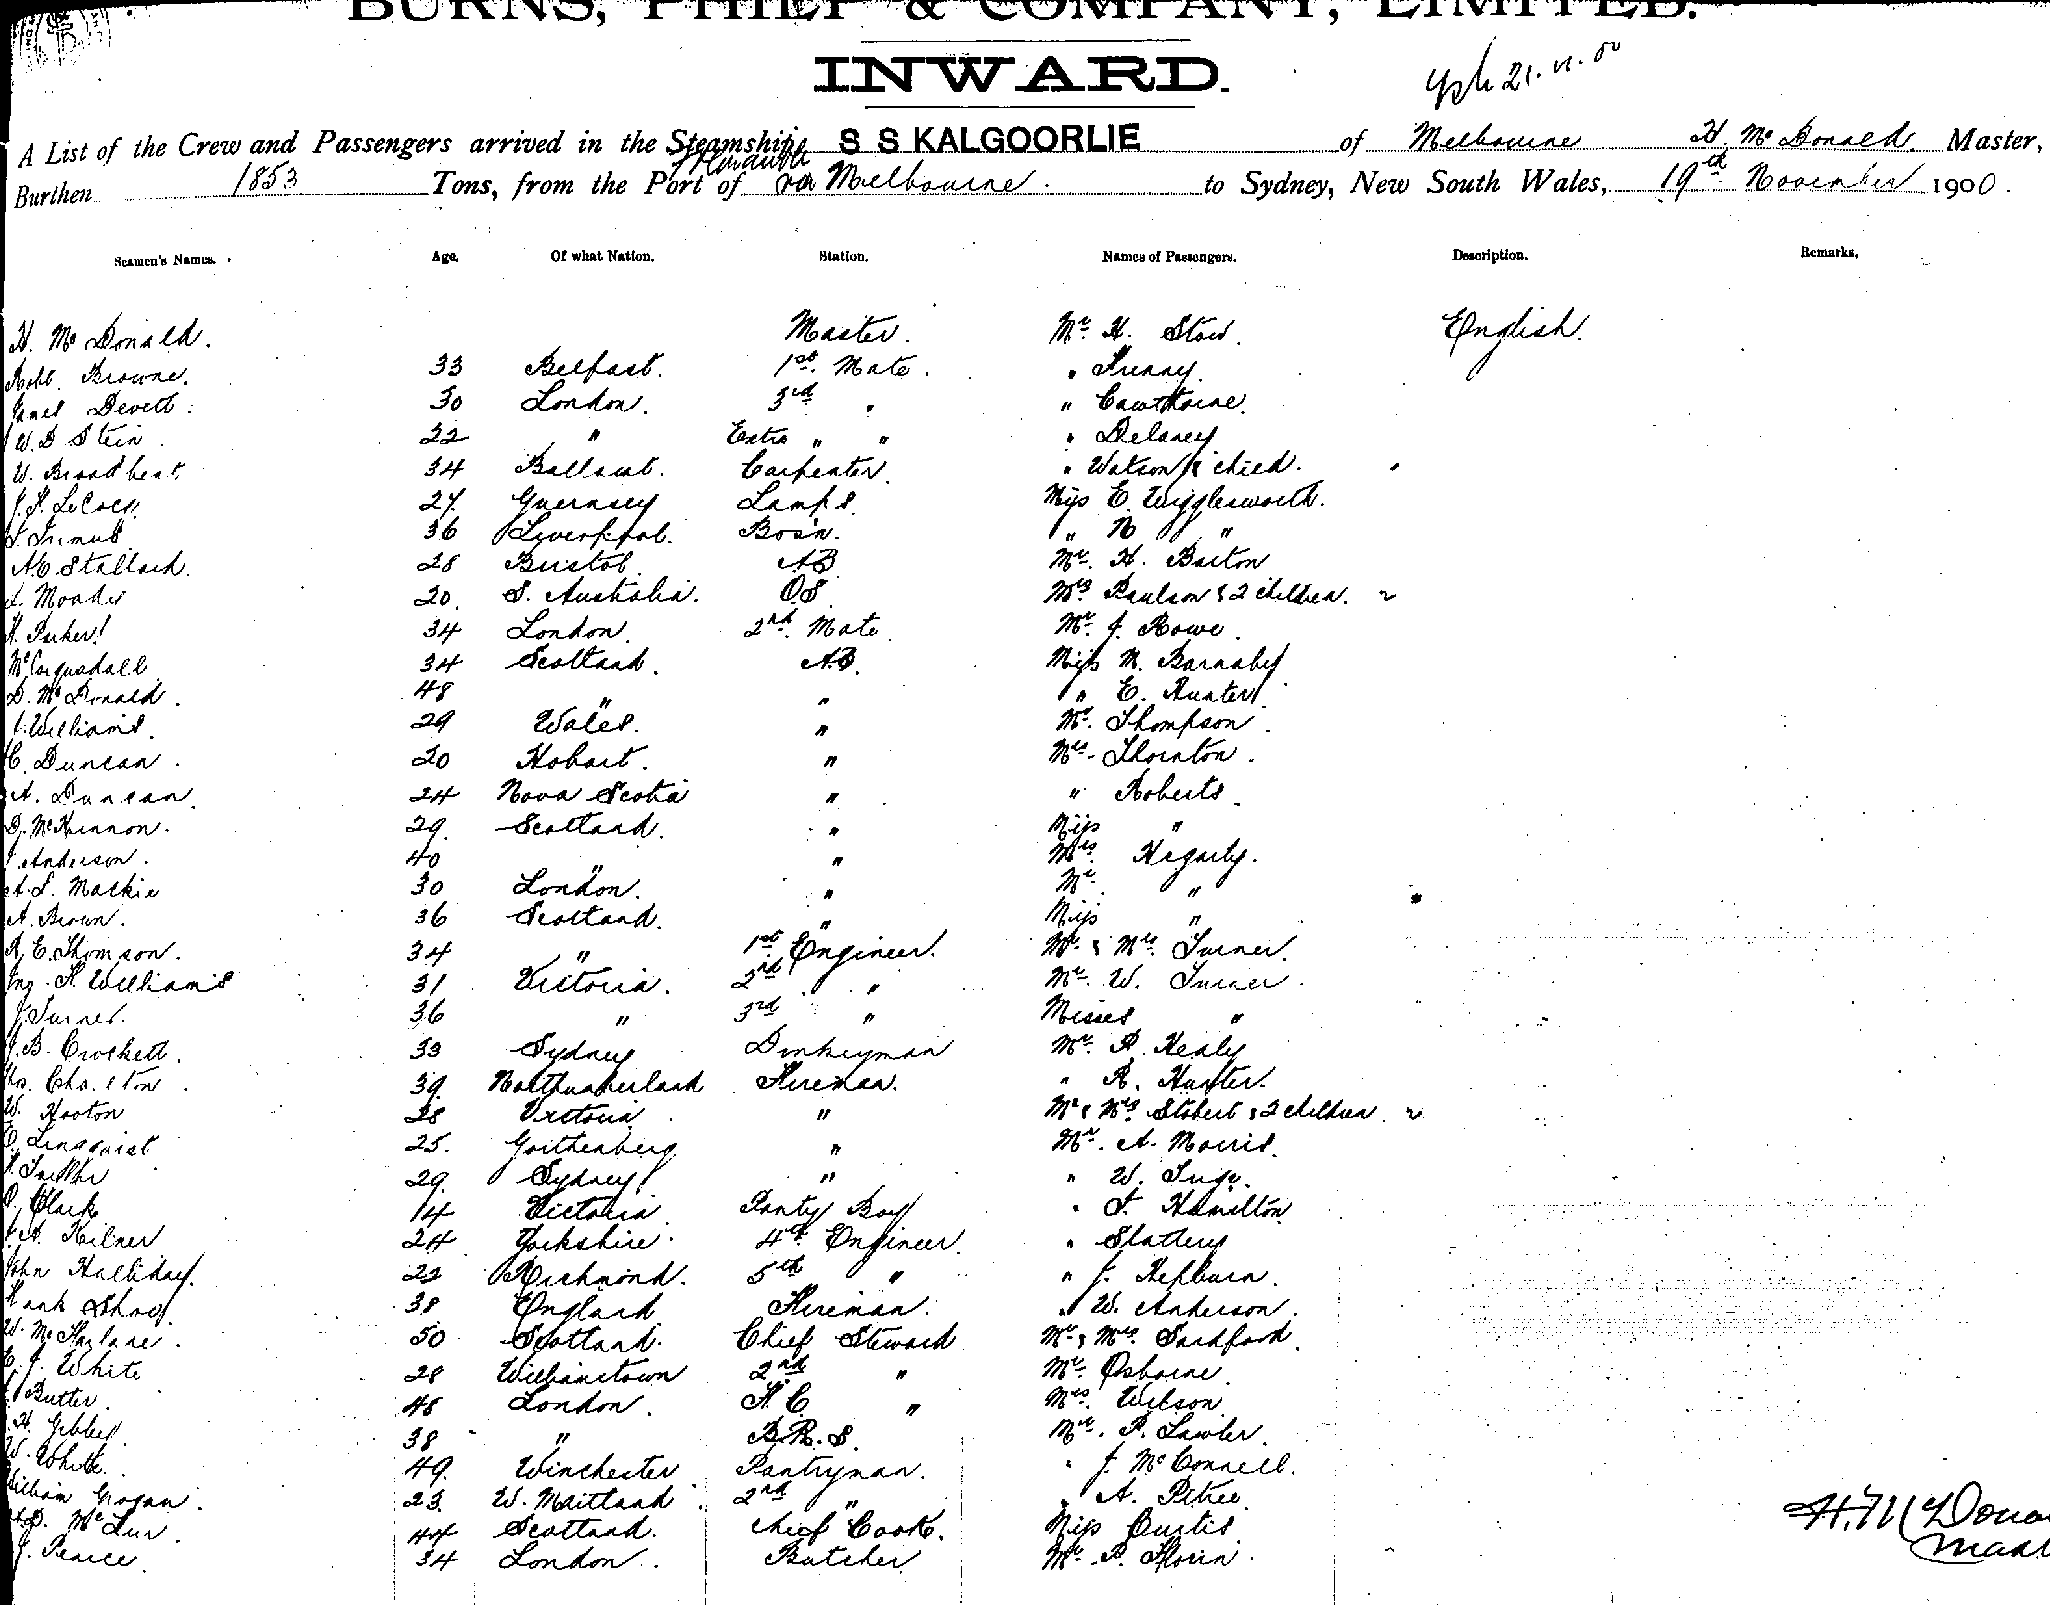 BURNS, PHILP & COMPANY, LIMITED.
INWARD.
21.11.00
A List of the Crew and Passengers arrived in the Steamship S S KALGOORLIE of Melbourne H. McDonald. Master,
Burthen 1853 Tons, from the Port of Fremantle via Melbourne. to Sydney, New South Wales, 19th November 1900.
Seamen's Names. Age. Of what Nation. Station. Names of Passengers. Description. Remarks,
H. McDonald. Master. Mr H. Stow. English.
Robt. Browne. 33 Belfast. 1st. Mate. "
Devett. 30 London. 3rd " " Cawthorne.
W. D Stein. 22 " Extra " " " Delaney
W. Broadbent. 34 Ballarat. Carpenter. " Watson & child.
LeCocq. 27. Guernsey Lamps. Miss E. Wigglesworth.
36 Liverpool. Bosn. " N "
Stallard. 28 Bristol. AB Mr. H. Barton
20. S. Australia. OS. Mrs Paulson & 2 children.
H. Parker. 34 London. 2nd. Mate. Mr. J. Rowe.
McCorquodall 34 Scotland. A.B. Miss M. Barnaby
D. McDonald. 48 " " " E. Hunter
Williams. 29 Wales. " Mr. Thompson.
C. Duncan. 20 Hobart. " Mrs. Thornton.
A. Duncan. 24 Nova Scotia " " Roberts.
D. McKinnon. 29. Scotland. " Miss "
Anderson. 40 " " Mrs. Hegarty.
A. S. Mackie 30 London. " Mr. "
A. Brown. 36 Scotland. " Miss "
R. E. Thomson. 34 " 1st Engineer. Mr. & Mrs. Turner.
H. Williams 31 Victoria. 2nd " Mr. W. Turner.
J. Turner. 36 " 3rd " Misses "
J. B. Crockett. 33 Sydney Donkeyman Mr. P. Healy
Charlton. 39. Northumberland Fireman. " R. Hunter.
W. Hooton 28 Victoria. " Mr & Mrs. Stobert & 2 children.
Linqquist 25. Gottenberg " Mr. A. Morris.
29. Sydney " " W.
Clark 14 Victoria. Panty Boy " F. Hamilton
Kilner 24 Yorkshire. 4th Engineer. " Slattery
John Halliday. 22 Richmond. 5th " " J. Hepburn.
Frank Shaw. 38 England Fireman. " W. Anderson.
W. McFarlane. 50 Scotland. Chief Steward Mr. & Mrs. Sandford.
E. J. White 28 Williamstown 2nd " Mr. Osborne.
Butter. 48 London. F. C " Mrs. Wilson
H. Gibbes. 38 " B.R.S. Mr. P. Lawler.
W. White. 49. Winchester Pantryman. " J. McConnell.
William Grogan. 23. W. Maitland. 2nd " " A. Petrie
44 Scotland. Chief Cook. Miss Curtis
J. Pearce. 34 London. Butcher Mr. P.
H. McDona
Mast